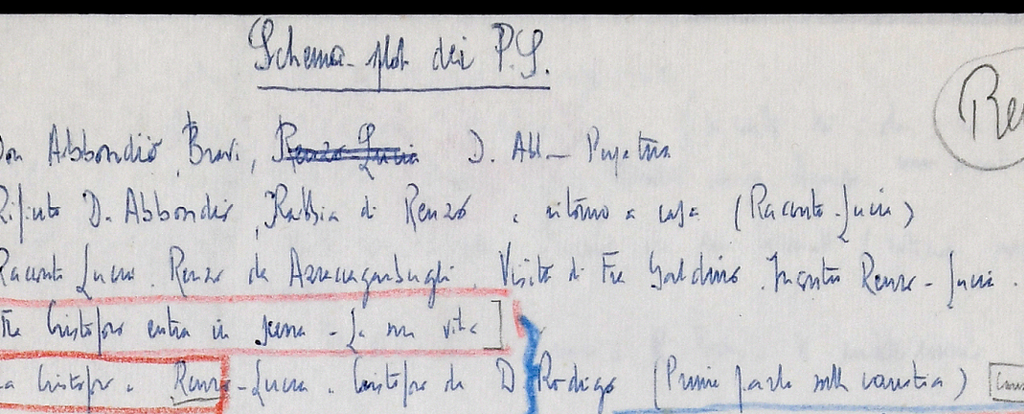 Schema-plot dei P.S.
Don Abbondio, Bravi, Renzo Lucia D. Abb- Perpetua
Rifiuto D. Abbondio, Rabbia di Renzo, ritorno a casa (Racconto-Lucia)
Racconto Lucia. Renzo da Azzeccagarbugli. Visita di Fra Galdino. Incontro Renzo-Lucia.
Fra Cristoforo entra in scena - La sua vita]
Cristoforo. Renzo-Lucia. Cristoforo da D Rodrigo (Prime parole sulla carestia)